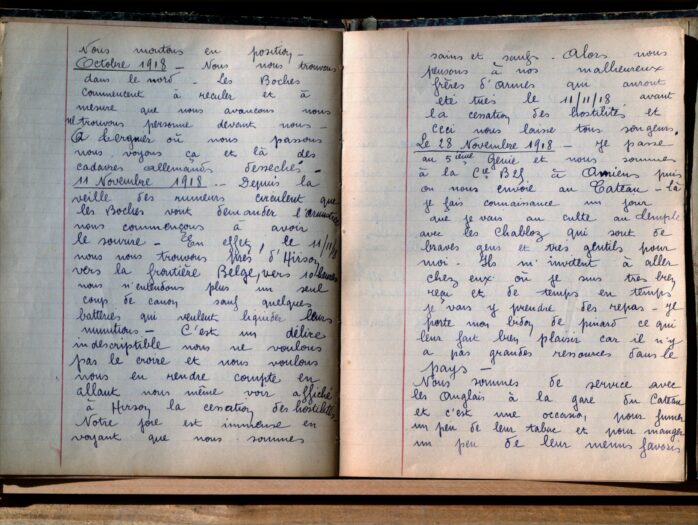 Nous montons en position –
Octobre 1918 – Nous nous trouvons
dans le nord – Les Boches
commencent à reculer et à
mesure que nous avancons nous
ne trouvons personne devant nous –
A Lergnies où nous passons
nous voyons ça et là des
cadavres allemands desséchés –
11 Novembre 1918 – Depuis la
veille des rumeurs circulent que
les Boches vont demander l'armistice
nous commençons à avoir
le sourire – En effet, le 11/11/18
nous nous trouvons près d'Hirson
vers la frontière Belge, vers 10 heures
nous n'entendons plus un seul
coup de canon sauf quelques
batteries qui veulent liquider leurs
munitions – C'est un délire
indescriptible nous ne voulons
pas le croire et nous voulons
nous en rendre compte en
allant nous même voir affiché
à Hirson la cessation des hostilités
Notre joie est immense en
voyant que nous sommes
sains et saufs – Alors nous
pensons à nos malheureux
frères d'Armes qui auront
été tués le 11/11/18 avant
la cessation des hostilités et
ceci nous laisse tous songeurs.
Le 28 Novembre 1918 – Je passe
au 5ième Génie et nous sommes
à la Cie à Amiens puis
on nous envoie au Cateau – là
je fais connaisance un jour
que je vais au culte au temple
avec les Chabloz qui sont de
braves gens et très gentils pour
moi – Ils m'invitent à aller
chez eux où je suis très bien
reçu et de temps en temps
je vais y prendre des repas – Je
porte mon bidon de pinard ce qui
leur fait bien plaisir car il n'y
a pas grandes ressources dans le
pays –
Nous sommes de service avec
les Anglais à la gare du Cateau
et c'est une occasion pour fumer
un peu de leur tabac et pour manger
un peu de leur menus favoris